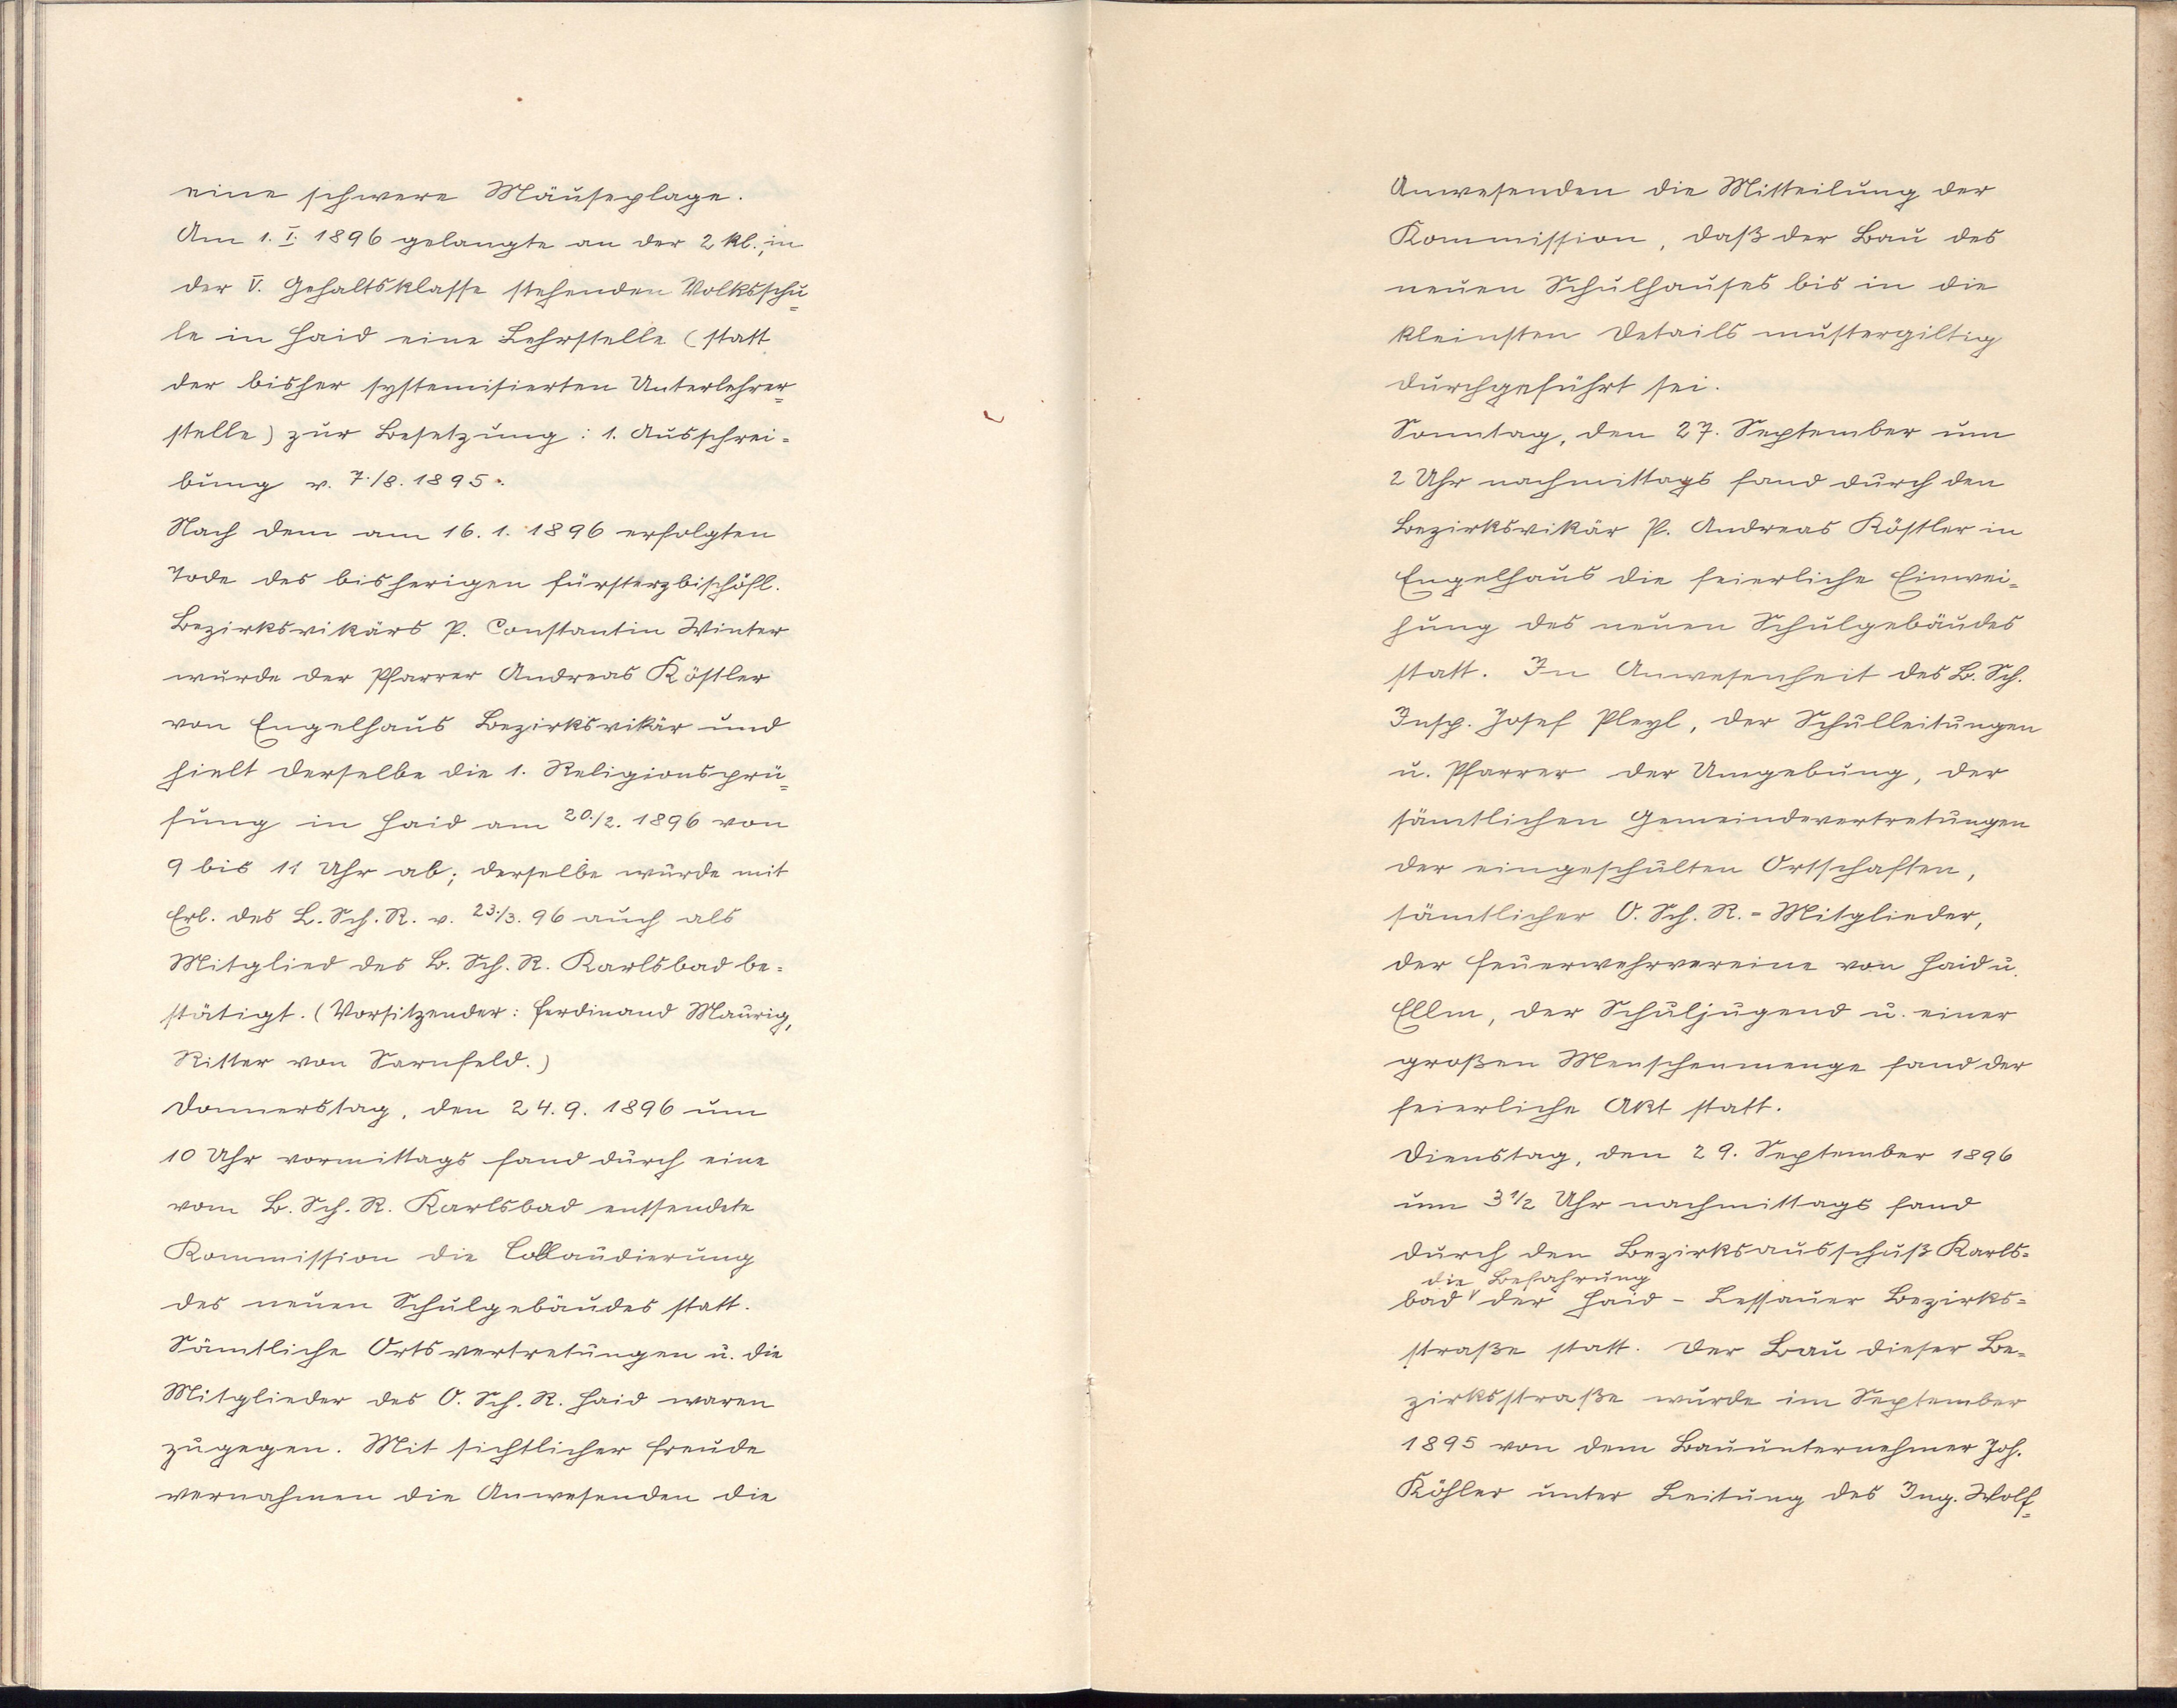 eine schwere Mäuseplage.
Am 1. I. 1896 gelangte an der 2 kl., in
der V. Gehaltsklasse stehenden Volksschu=
le in Haid eine Lehrstelle (statt
der bisher systemisierten Unterlehrer=
stelle) zur Besetzung: 1. Ausschrei=
bung v. 7./8. 1895.
Nach dem am 16. 1. 1896 erfolgten
Tode des bisherigen fürsterzbischöfl.
Bezirksvikärs P. Constantin Winter
wurde der Pfarrer Andreas Köstler
von Engelhaus Bezirksvikär und
hielt derselbe die 1. Religionsprü=
fung in Haid am 20./2. 1896 von
9 bis 11 Uhr ab; derselbe wurde mit
Erl. des L. Sch. R. v. 23./3. 96 auch als
Mitglied des B. Sch. R. Karlsbad be=
stätigt. (Vorsitzender: Ferdinand Maurig,
Ritter von Sarnfeld.)
Donnerstag, den 24. 9. 1896 um
10 Uhr vormittags fand durch eine
vom B. Sch. R. Karlsbad entsendete
Kommission die Collaudierung
des neuen Schulgebäudes statt.
Sämtliche Ortsvertretungen u. die
Mitglieder des O. Sch. R. Haid waren
zugegen. Mit sichtlicher Freude
vernahmen die Anwesenden die
Anwesenden die Mitteilung der
Kommission, daß der Bau des
neuen Schulhauses bis in die
kleinsten Details mustergiltig
durchgeführt sei.
Sonntag, den 27. September um
2 Uhr nachmittags fand durch den
Bezirksvikär P. Andreas Köstler in
Engelhaus die feierliche Einwei=
hung des neuen Schulgebäudes
statt. In Anwesenheit des B. Sch.
Insp. Josef Pleyl, der Schulleitungen
u. Pfarrer der Umgebung, der
sämtlichen Gemeindevertretungen
der eingeschulten Ortschaften,
sämtlicher O. Sch. R.=Mitglieder,
der Feuerwehrvereine von Haid u.
Ellm, der Schuljugend u. einer
großen Menschenmenge fand der
feierliche Akt statt.
Dienstag, den 29. September 1896
um 3 1/2 Uhr nachmittags fand
durch den Bezirksausschuß Karls=
die Befahrung
bad der Haid - Lessauer Bezirks=
straße statt. Der Bau dieser Be=
zirksstraße wurde im September
1895 von dem Bauunternehmer Joh.
Köhler unter Leitung des Ing. Wolf=